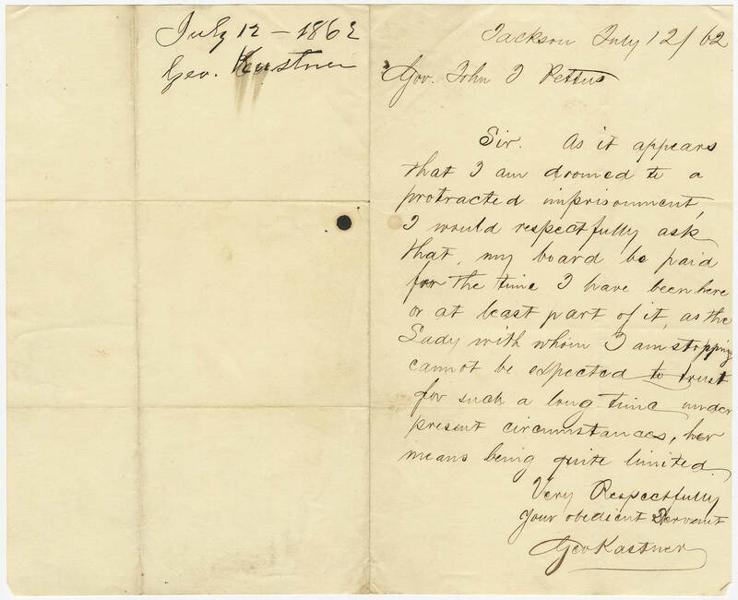 July 12 - 1862
Geo. Kastner
Jackson July 12/62
Gov. John J Pettus
Sir. As it appears
that I am doomed to a
protracted imprisonment,
I would respectfully ask
that, my board be paid
for the time I have been here
or at least part of it, as the
Lady with whom I am stopping
cannot be expected to trust
for such a long time under
present circumstances, her
means being quite limited.
Very Respectfully
Your obedient Servant
Geo Kastner